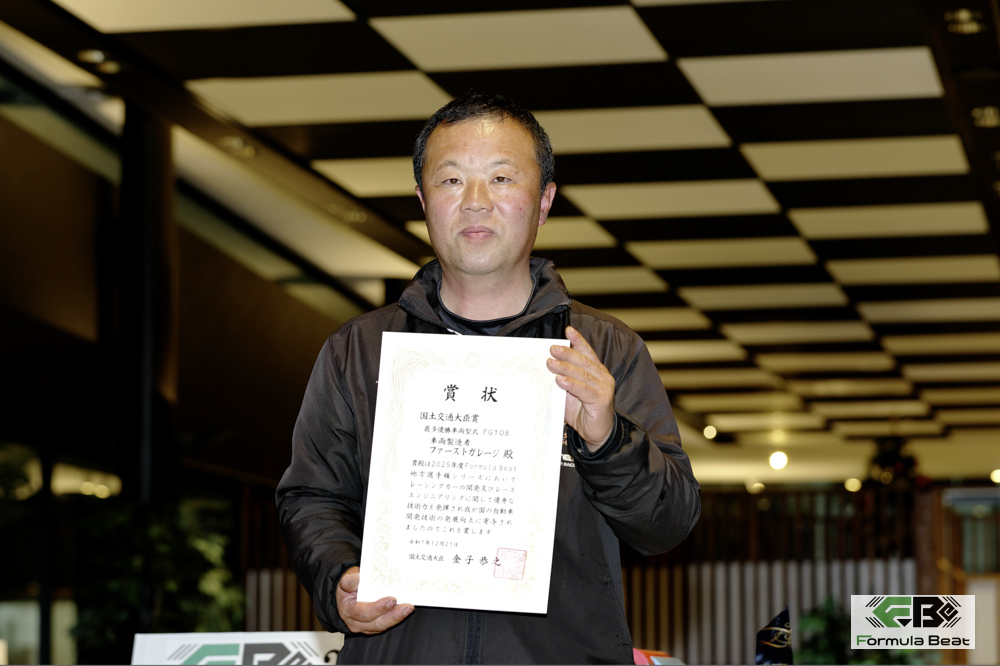 賞状
国土交通大臣賞
最多優勝車両型式 FG108
車両製造者
ファーストガレージ 殿
貴殿は2025年度Formula Beat
地方選手権シリーズにおいて
レーシングカーの開発及びレース
エンジニアリングに関して優秀な
技術力を発揮され我が国の自動車
開発技術の発展向上に寄与され
ましたのでこれを賞します
令和7年12月21日
国土交通大臣 金子恭之
FBe
Formula Beat